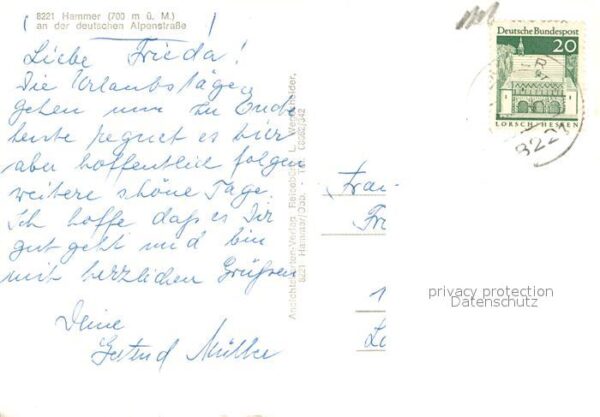 8221 Hammer (700 m ü. M.)
an der deutschen Alpenstraße
Liebe Frieda!
Die Urlaubstage
gehen nun zu Ende
heute regnet es hier
aber hoffentlich folgen
weitere schöne Tage.
Ich hoffe daß es Dir
gut geht und bin
mit herzlichen Grüßen
Deine
Gertrud Müller
Ansichtskarten-Verlag
8221 Hammer/Obb.
Deutsche Bundespost
20
LORSCH · HESSEN
8221
Frau
Fri
1
privacy protection
Datenschutz